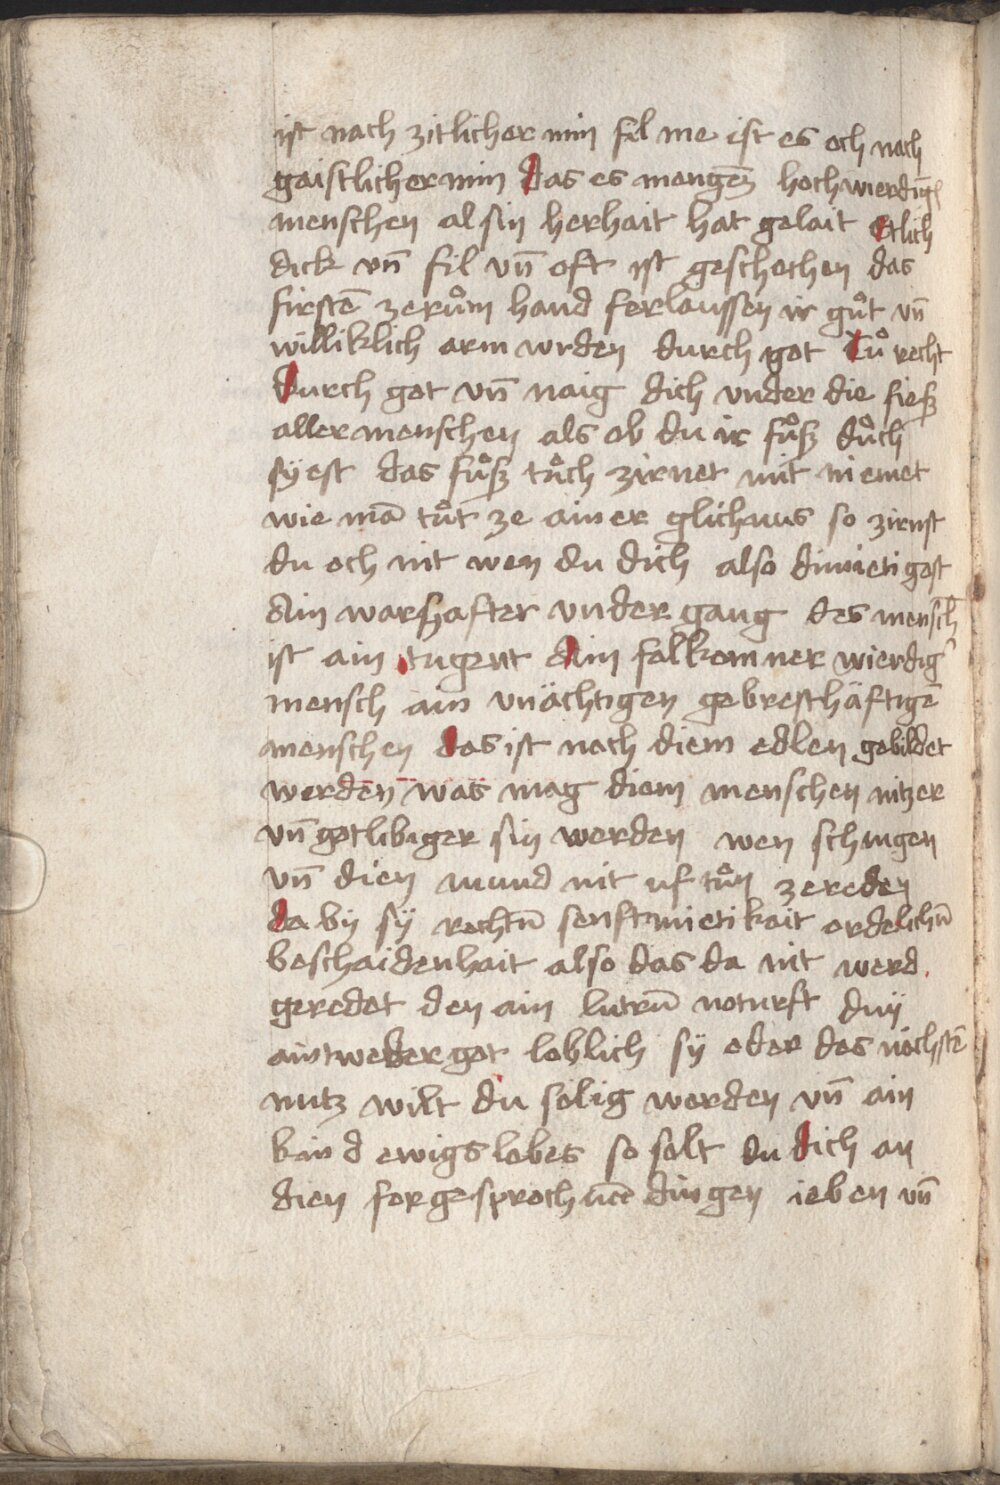 ist nach zitlicher min fil me ist es och nach
gaistlicher min Das es mengen̄ hochwierdige͂
menschen al sin herhait hat gelait Etlich
dick vn̄ fil vn̄ oft ist geschechen das
firstē ze rům hand ferlaussen ir gůt vn̄
williklich arm wrden durch got Tů recht
Durch got vn̄ naig dich vnder die fieß
aller menschen als ob du ir fůß důch
syest das fůß tůch zirnet mit niemet
wie mā tůt ze ainer glichnus so zirnst
du och nit wen du dich also diemietigest
Ain warhafter vnder gang des mensch̄
ist ain tugent Ain folkomner wierdig͛
mensch ain vnächtigen gebresthäftigē
menschen Das ist nach diem edlen gebildet
werden was mag diem menschen nitzer
vn̄ gotlibiger sin werden wen schwigen
vn̄ dien mund nit uf tůn ze reden
Da by sy rechtū senftmietikait ordelichū
beschaidenhait also das da nit werd
geredet den ain lutrū noturft duÿ
aintweder got loblich sÿ oder des nächstē
nutz wilt du selig werden vn̄ ain
kind ewigs lobes so solt du dich an
dien for gesprochnē dingen ieben vn̄